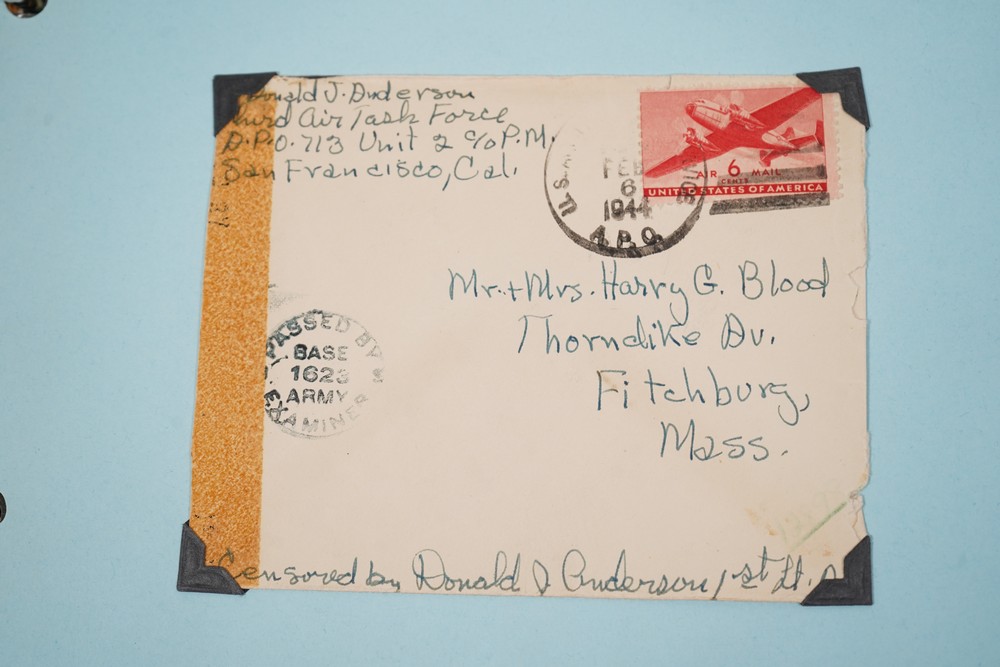 Donald J. Anderson
Third Air Task Force
A.P.O. 713 Unit 2 c/o P.M.
San Francisco, Cal.
U.S.
FEB
6
1944
A.P.O.
AIR 6 MAIL
CENTS
UNITED STATES OF AMERICA
Mr. + Mrs. Harry G. Blood
Thorndike Av.
Fitchburg,
Mass.
PASSED BY
BASE
1623
ARMY
EXAMINER
Censored by Donald J Anderson 1st Lt.